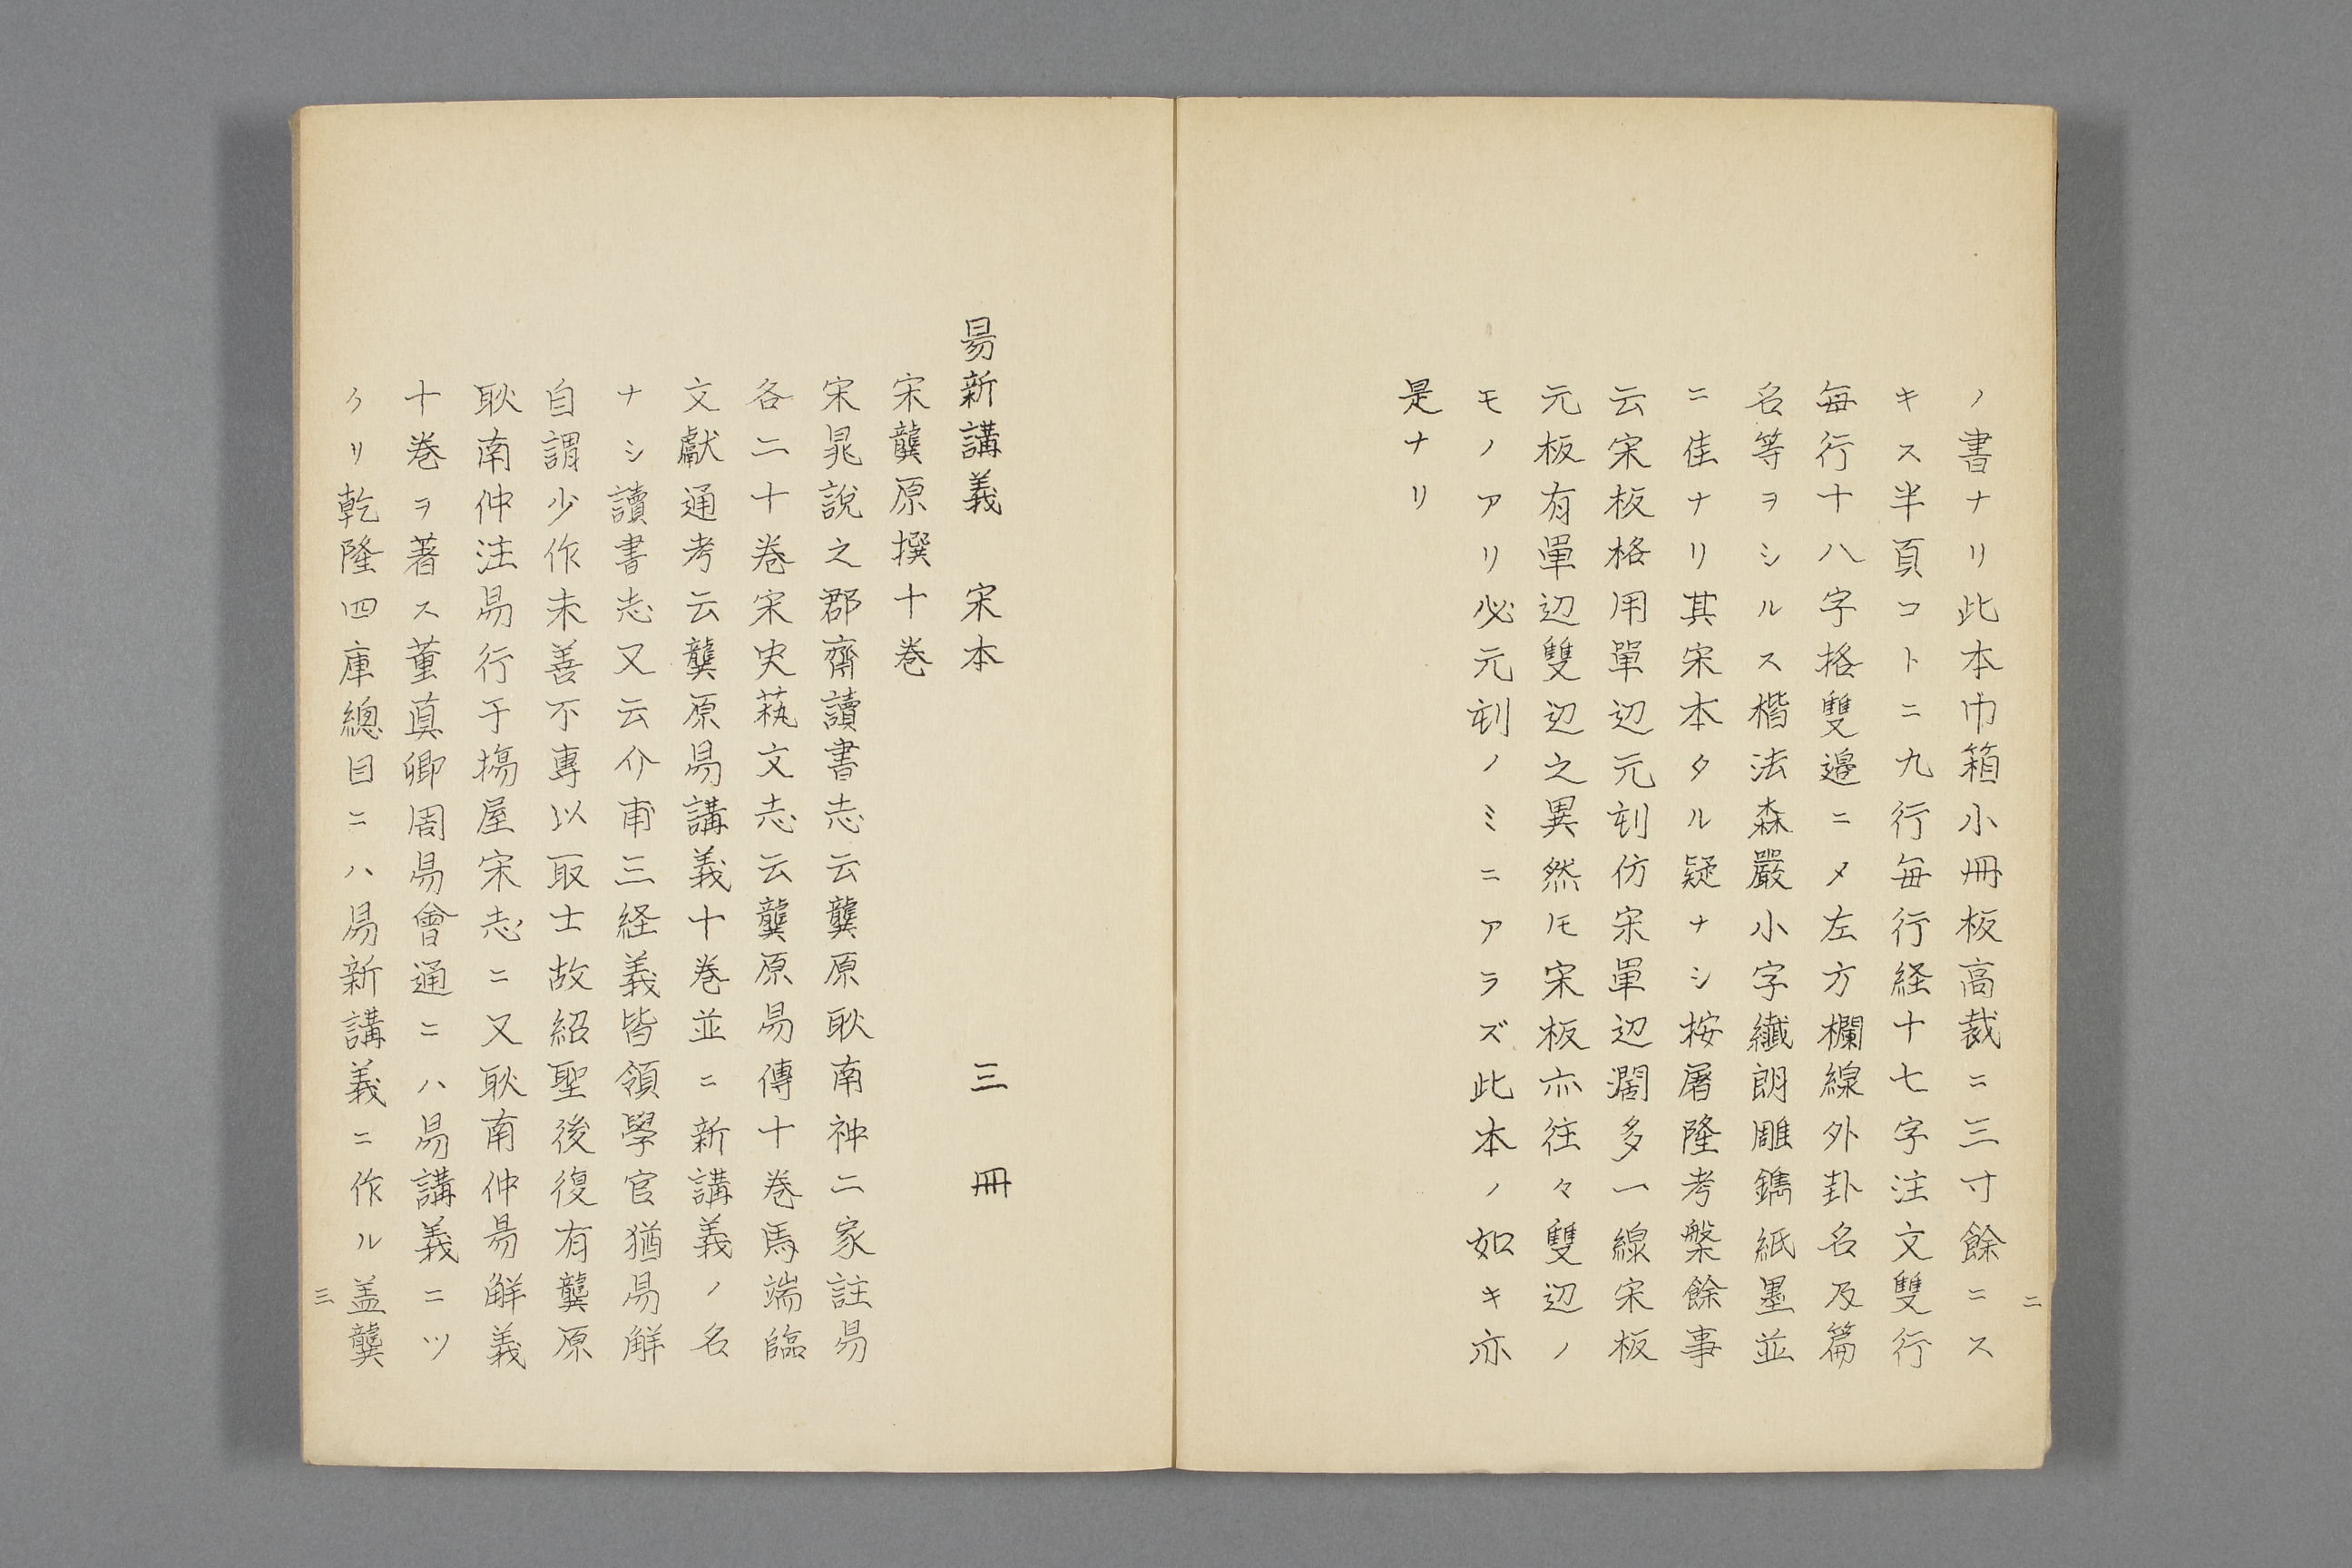 ノ書ナリ此本巾箱小冊板高裁ニ三寸餘ニス
キス半頁コトニ九行每行経十七字注文雙行
每行十八字格雙邉ニメ左方欄線外卦名及篇
名等ヲシルス楷法森嚴小字纎朗雕鐫紙墨並
ニ佳ナリ其宋本タル疑ナシ按屠隆考槃餘事
云宋板格用單辺元刻仿宋單辺濶多一線宋板
元板有單辺雙辺之異然𪜈宋板亦往々雙辺ノ
モノアリ必元刻ノミニアラズ此本ノ如キ亦
是ナリ
二
易新講義　宋本　三冊
宋龔原撰十卷
宋晁説之郡齋讀書志云龔原耿南神二家註易
各二十卷宋史蓺文志云龔原易傳十卷馬端臨
文獻通考云龔原易講義十卷並ニ新講義ノ名
ナシ讀書志又云介甫三経義皆領學官猶易觧
自謂少作未善不專以取士故紹聖後復有龔原
耿南仲注易行于塲屋宋志ニ又耿南仲易觧義
十卷ヲ著ス董真卿周易會通ニハ易講義ニツ
クリ乾隆四庫總目ニハ易新講義ニ作ル盖龔
三